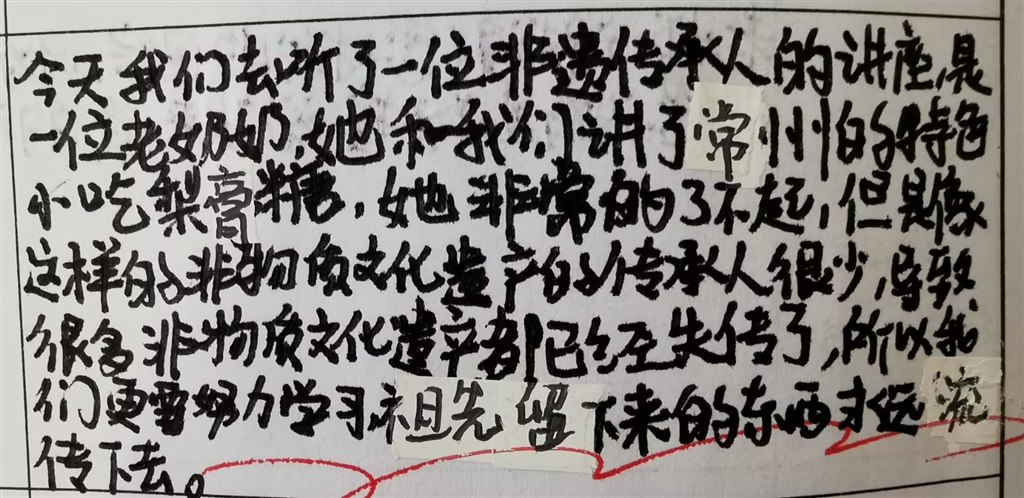 今天我们去听了一位非遗传承人的讲座,是
一位老奶奶,她和我们讲了常州的特色
小吃梨膏糖,她非常的了不起,但是像
这样的非物质文化遗产的传承人很少,导致
很多非物质文化遗产都已经失传了,所以我
们更需努力学习祖先留下来的东西才能流
传下去。